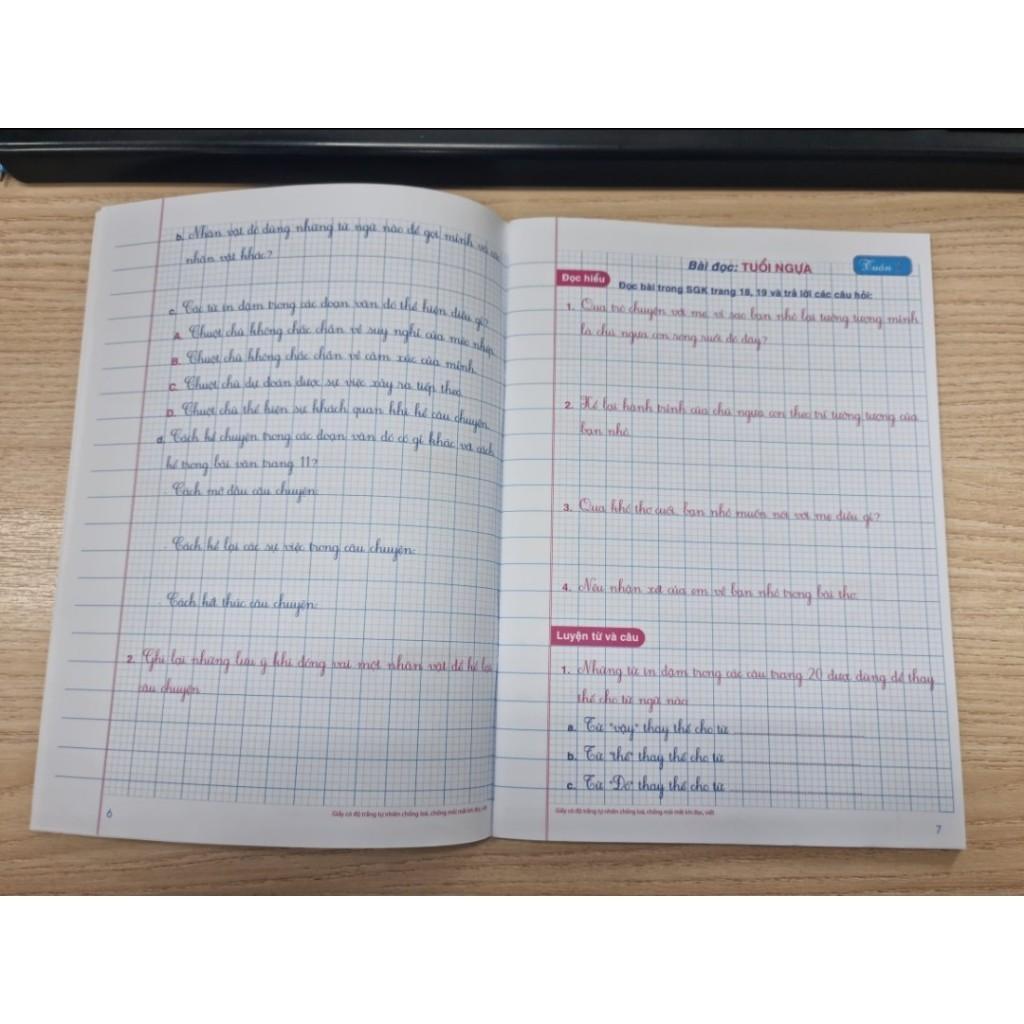 b. Nhân vật đó dùng những từ ngữ nào để gọi mình và các
nhân vật khác?
c. Các từ in đậm trong các đoạn văn đó thể hiện điều gì?
A. Chuột chù không chắc chắn về suy nghĩ của mèo nhép.
B. Chuột chù không chắc chắn về cảm xúc của mình.
C. Chuột chù dự đoán được sự việc xảy ra tiếp theo.
D. Chuột chù thể hiện sự khách quan khi kể câu chuyện.
d. Cách kể chuyện trong các đoạn văn đó có gì khác với cách
kể trong bài văn trang 11?
- Cách mở đầu câu chuyện:
- Cách kể lại các sự việc trong câu chuyện:
- Cách kết thúc câu chuyện:
2. Ghi lại những lưu ý khi đóng vai một nhân vật để kể lại
câu chuyện.
6
Giấy có độ trắng tự nhiên chống loá, chống mỏi mắt khi đọc, viết
Bài đọc: TUỔI NGỰA
Tuần
Đọc hiểu
Đọc bài trong SGK trang 18, 19 và trả lời các câu hỏi:
1. Qua trò chuyện với mẹ, vì sao bạn nhỏ lại tưởng tượng mình
là chú ngựa con rong ruổi đó đây?
2. Kể lại hành trình của chú ngựa con theo trí tưởng tượng của
bạn nhỏ.
3. Qua khổ thơ cuối, bạn nhỏ muốn nói với mẹ điều gì?
4. Nêu nhận xét của em về bạn nhỏ trong bài thơ.
Luyện từ và câu
1. Những từ in đậm trong các câu trang 20 được dùng để thay
thế cho từ ngữ nào?
a. Từ "vậy" thay thế cho từ
b. Từ "thế" thay thế cho từ
c. Từ "Đó" thay thế cho từ
Giấy có độ trắng tự nhiên chống loá, chống mỏi mắt khi đọc, viết
7